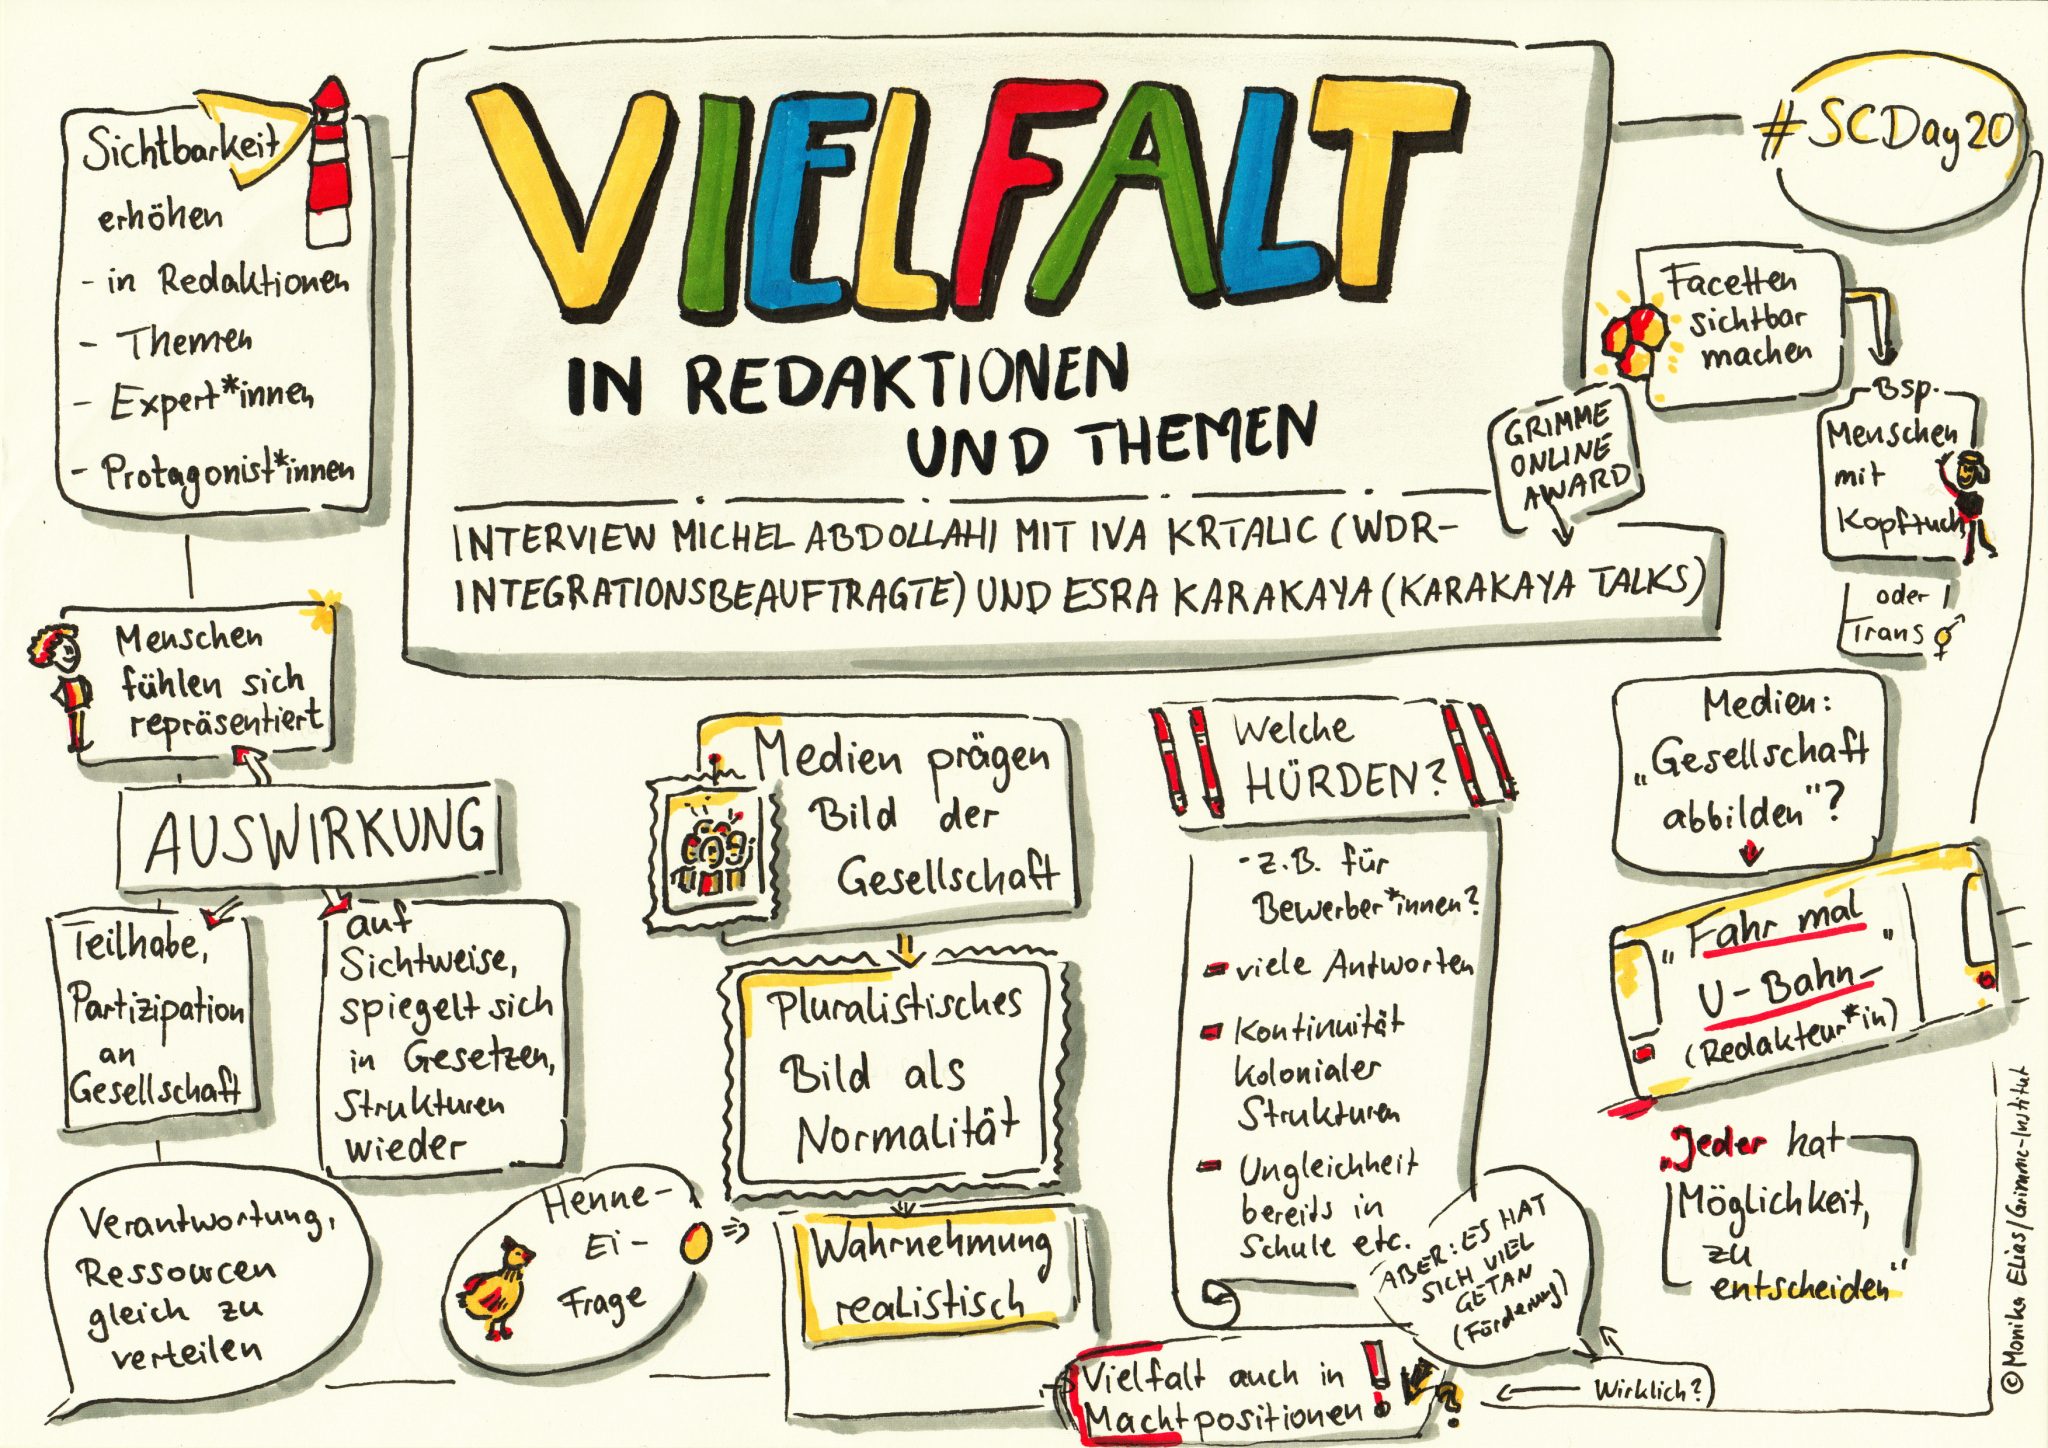 VIELFALT
IN REDAKTIONEN
UND THEMEN
INTERVIEW MICHEL ABDOLLAHI MIT IVA KRTALIC (WDR-
INTEGRATIONSBEAUFTRAGTE) UND ESRA KARAKAYA (KARAKAYA TALKS)
GRIMME
ONLINE
AWARD
#SCDay20
Sichtbarkeit
erhöhen
- in Redaktionen
- Themen
- Expert*innen
- Protagonist*innen
Menschen
fühlen sich
repräsentiert
AUSWIRKUNG
Teilhabe,
Partizipation
an
Gesellschaft
auf
Sichtweise,
spiegelt sich
in Gesetzen,
Strukturen
wieder
Verantwortung,
Ressourcen
gleich zu
verteilen
Henne-
Ei-
Frage
Medien prägen
Bild der
Gesellschaft
Pluralistisches
Bild als
Normalität
Wahrnehmung
realistisch
Vielfalt auch in
Machtpositionen!
?
Welche
HÜRDEN?
- z.B. für
Bewerber*innen?
- viele Antworten
- Kontinuität
kolonialer
Strukturen
- Ungleichheit
bereits in
Schule etc.
ABER: ES HAT
SICH VIEL
GETAN
(Förderung)
Wirklich?
Facetten
sichtbar
machen
Bsp.
Menschen
mit
Kopftuch
oder
Trans ⚥
Medien:
„Gesellschaft
abbilden"?
"Fahr mal
U-Bahn"
(Redakteur*in)
„Jeder hat
Möglichkeit,
zu
entscheiden"
© Monika Elias/Grimme-Institut